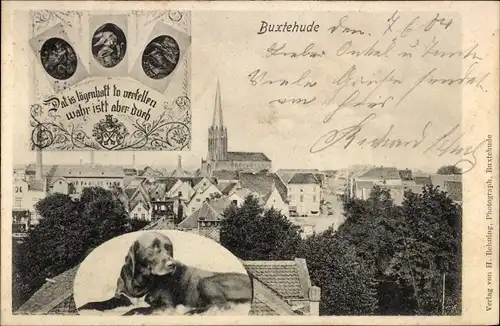 Buxtehude
den. 7/6 04
Lieber Onkel u Tante
Viele Grüße sendet
Richard
Dat is lögenhaft to vertellen
wahr istt aber doch
Verlag von H. Behnfog, Photograph, Buxtehude